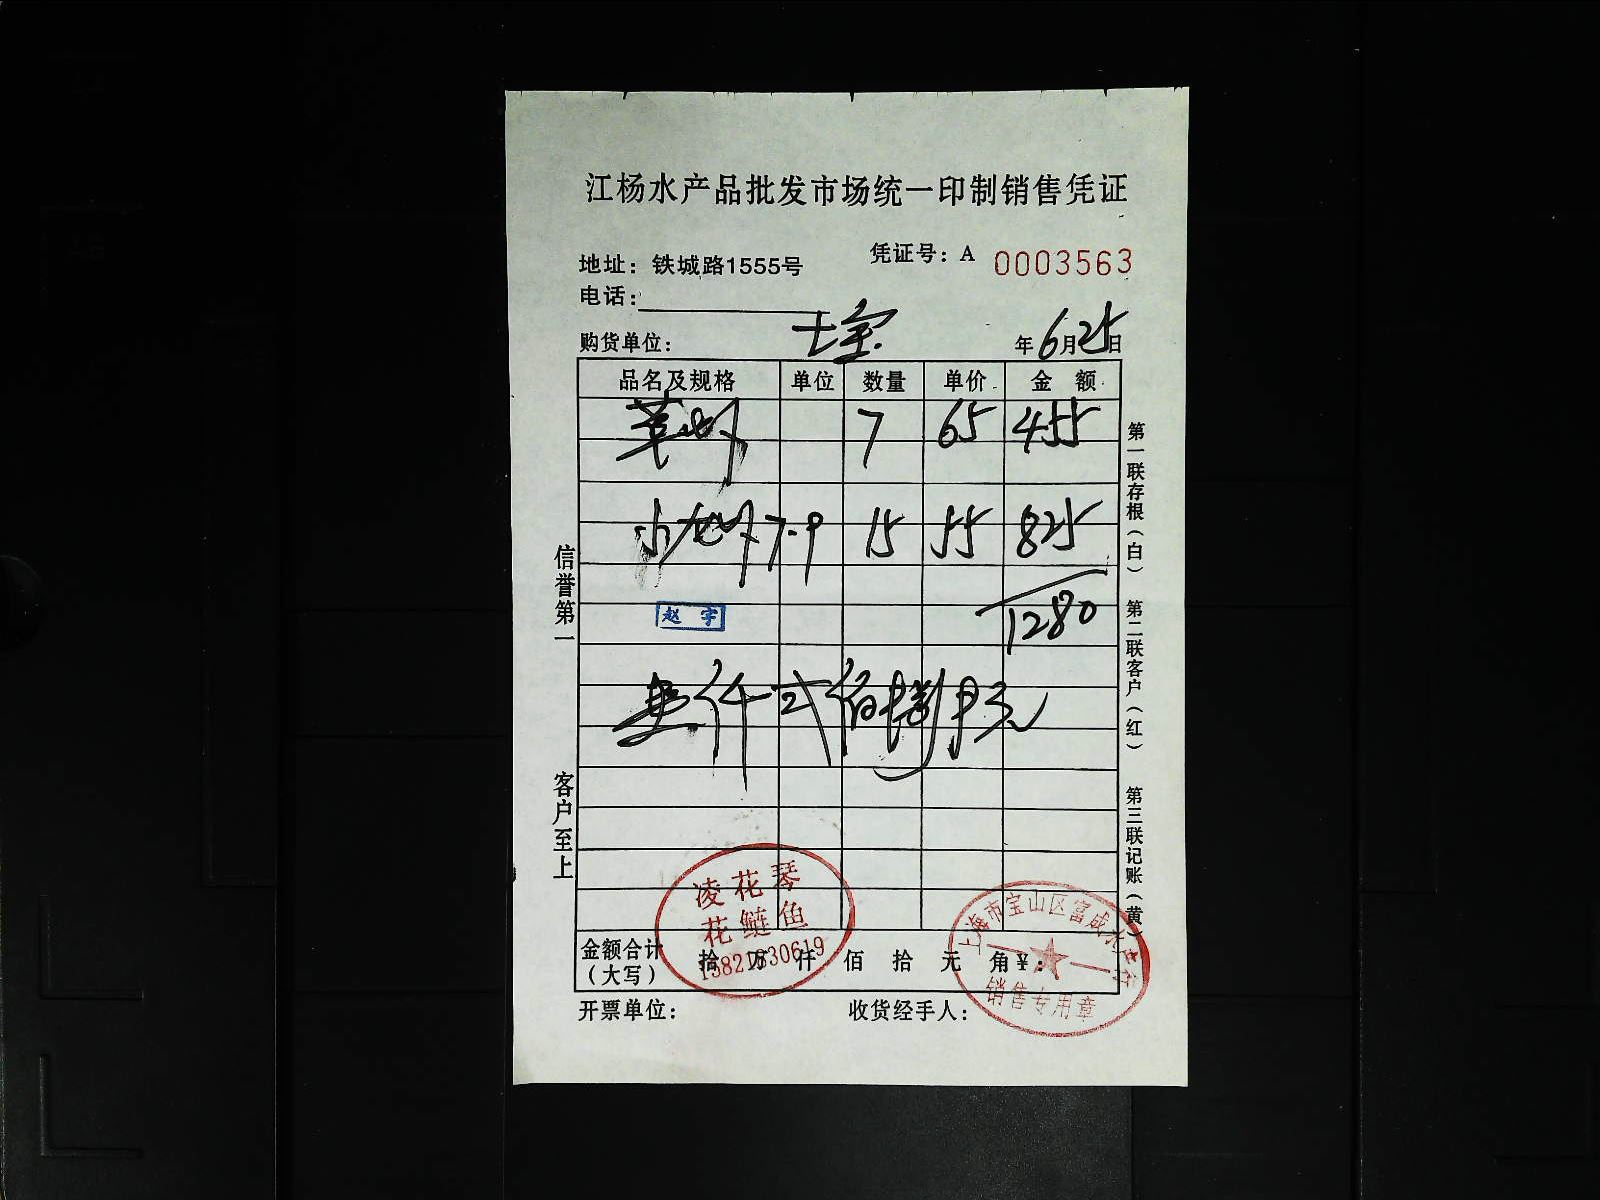 江杨水产品批发市场统一印制销售凭证
地址：铁城路1555号 凭证号：A 0003563
电话：
购货单位： 七宝 年6月25日
品名及规格 单位 数量 单价 金 额
草虾 7 65 455
小龙虾 7-9 15 55 825
1280
赵宇
壹仟贰佰捌拾元
信誉第一
客户至上
第一联存根（白）
第二联客户（红）
第三联记账（黄）
凌花琴
花鲢鱼
上海市宝山区富成水产行
销售专用章
金额合计（大写） 拾 万 仟 佰 拾 元 角 ¥：
开票单位： 收货经手人：